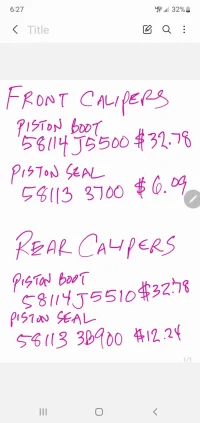 6:27
32%
Title
FRONT CALIPERS
PISTON BOOT
58114 J5500 $32.78
PISTON SEAL
58113 3700 $6.09
REAR CALIPERS
PISTON BOOT
58114 J5510 $32.78
PISTON SEAL
58113 3B900 $12.24
1/1